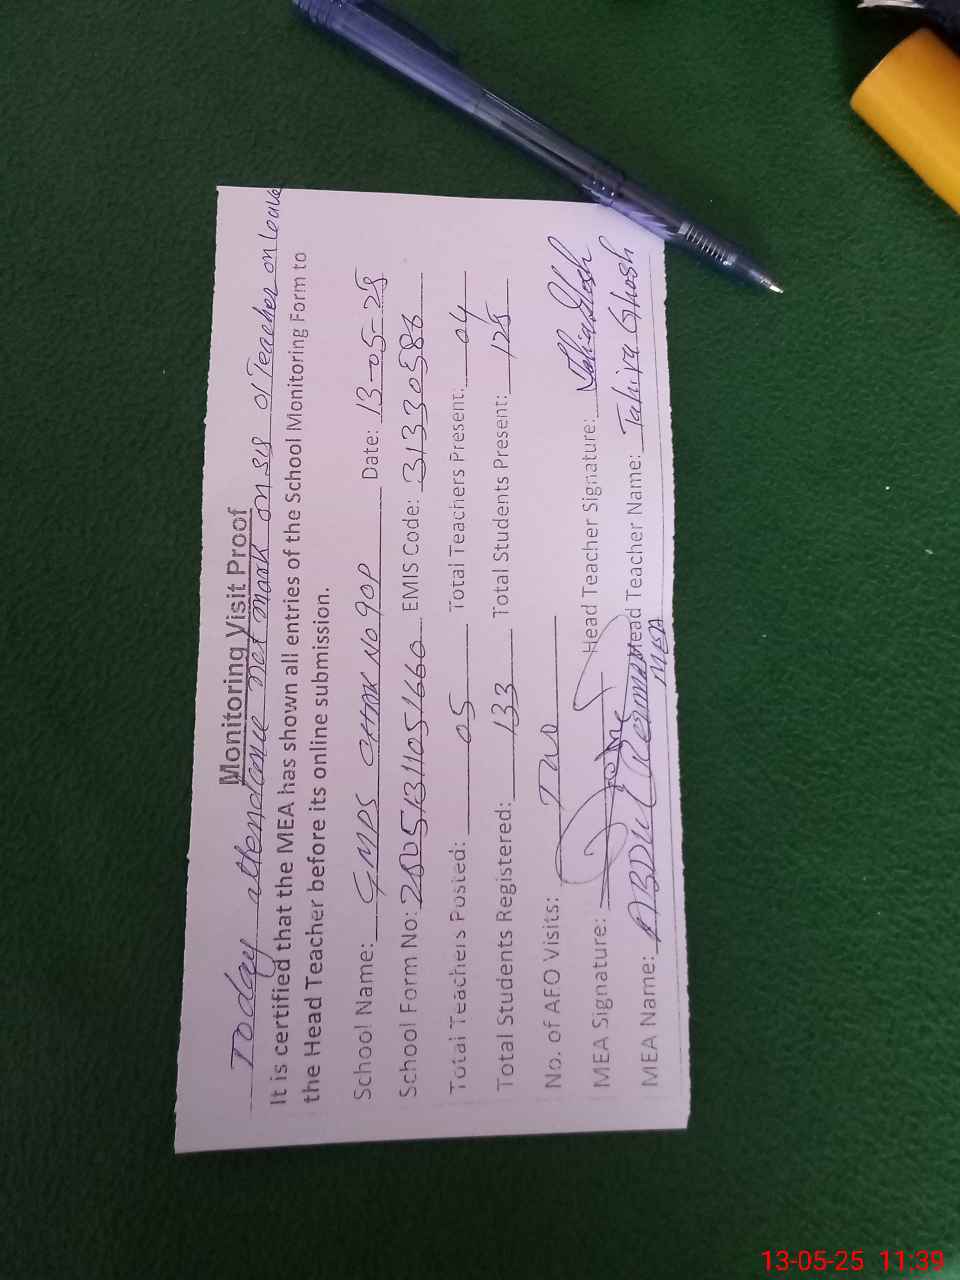 Monitoring Visit Proof
Today attendance not mark on SIS 01 Teacher on leave
It is certified that the MEA has shown all entries of the School Monitoring Form to
the Head Teacher before its online submission.
School Name: GMPS CHAK No 90P Date: 13-05-25
School Form No: 2505131105166 EMIS Code: 31330586
Total Teachers Posted: 05 Total Teachers Present: 04
Total Students Registered: 133 Total Students Present: 125
No. of AFO Visits: Two
MEA Signature: Head Teacher Signature:
MEA Name: ABDUL Rehman Head Teacher Name: Tahira Ghosh
MEA
13-05-25 11:39